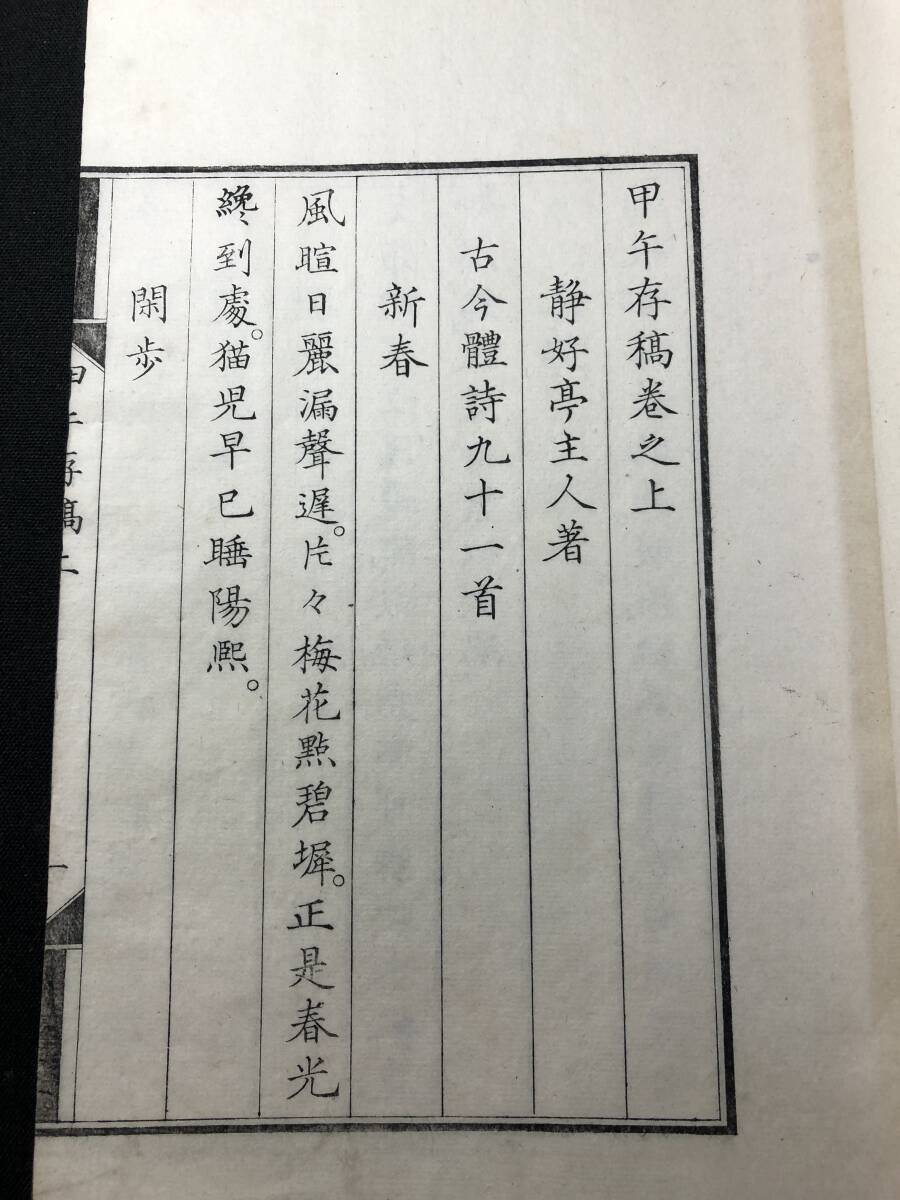 甲午存稿卷之上
静好亭主人著
古今體詩九十一首
新春
風暄日麗漏聲遲。片々梅花點碧墀。正是春光
纔到處。猫児早已睡陽熙。
閑歩
甲午存稿上
一